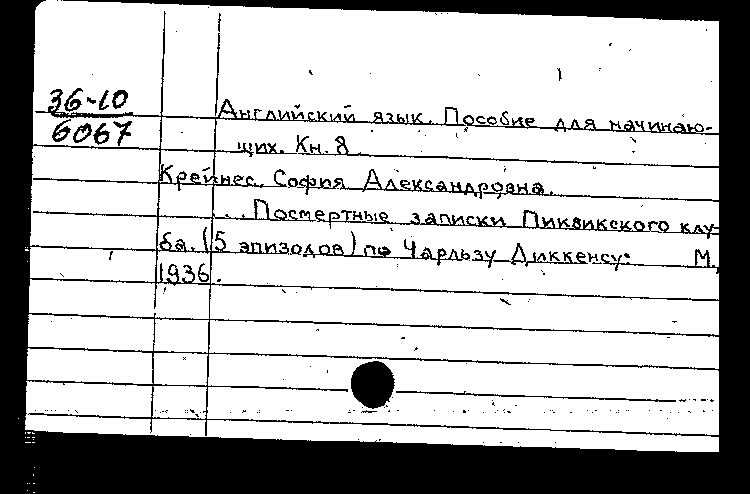 36-10
6067
Английский язык. Пособие для начинаю-
щих. Кн. 8
Крейнес. София Александровна.
... Посмертные записки Пиквикского клу-
ба. (5 эпизодов) по Чарльзу Диккенсу. М.,
1936.